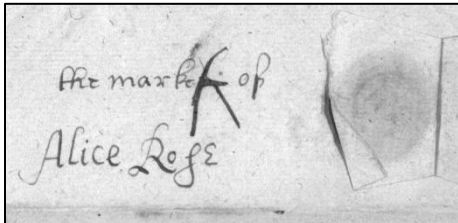 the marke of
Alice Rose